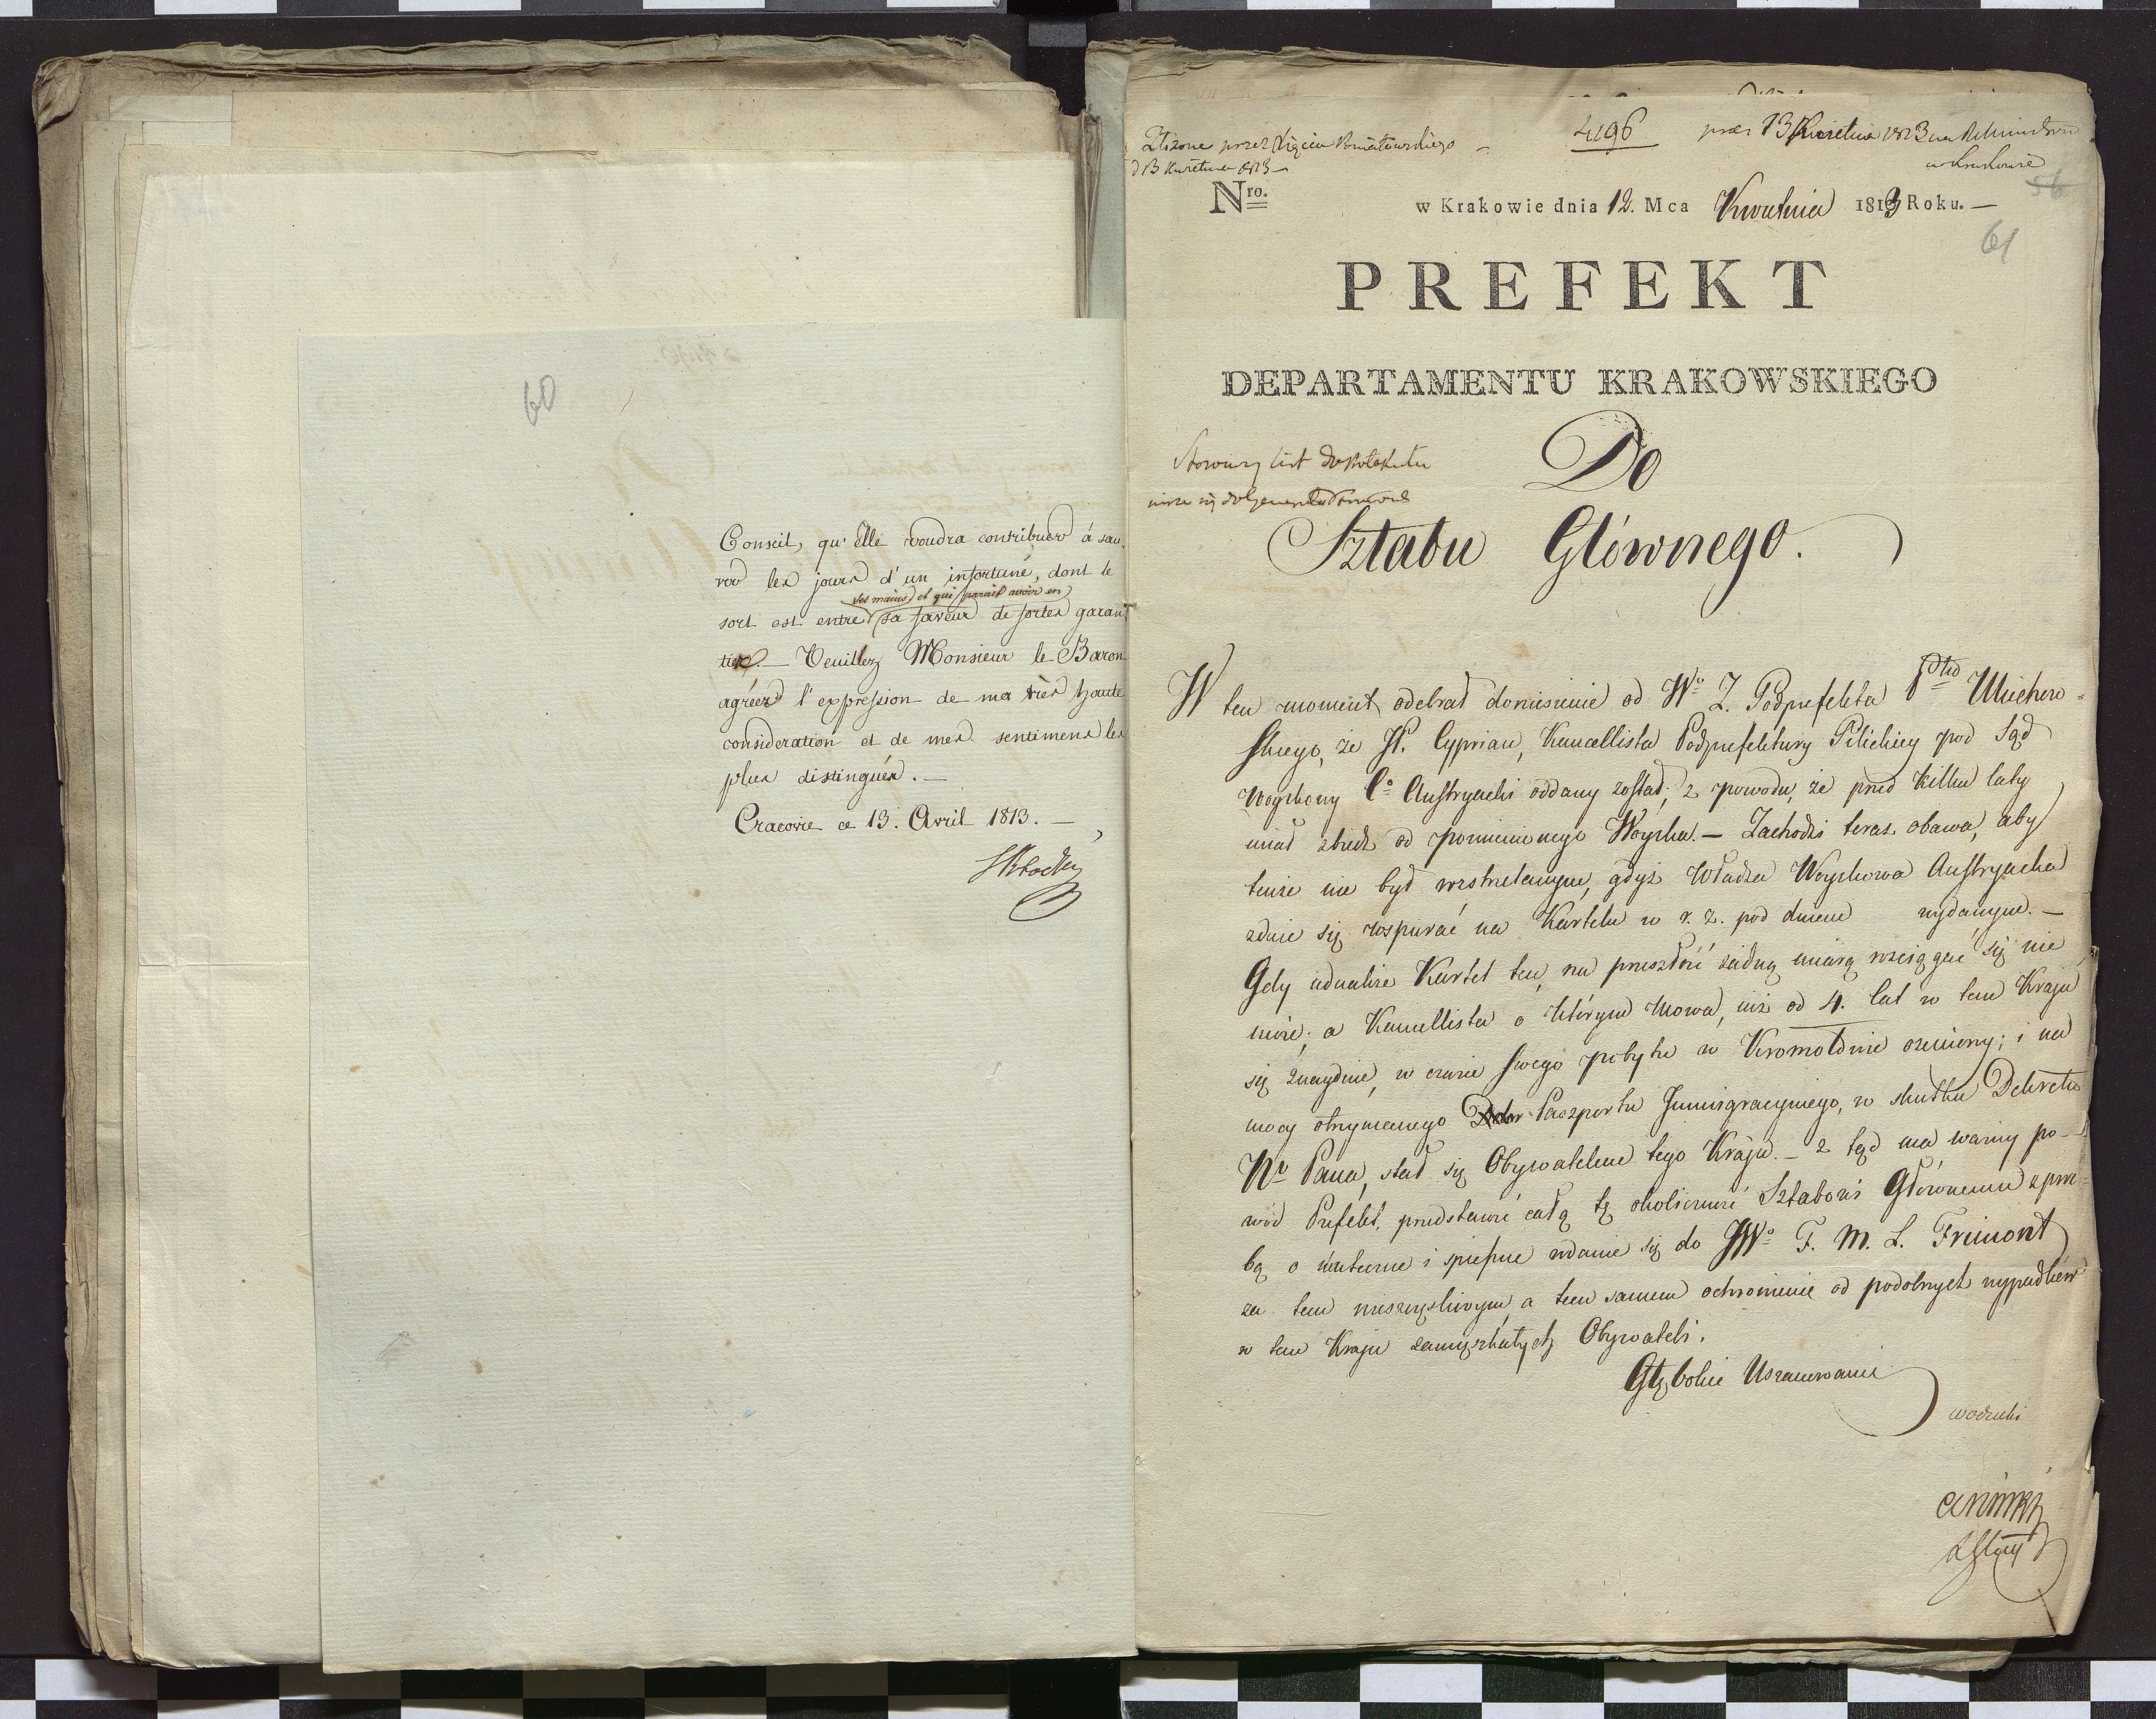 60
Conseil, qu'Elle voudra contribuer à sau-
ver les jours d'un infortuné, dont le
ses mains et qui parait avoir en
sort est entre sa faveur de fortes garan-
ties. — Veuillez Monsieur le Baron
agréer l'expression de ma très haute
consideration et de mes sentimens les
plus distingués. —
Cracovie ce 13. Avril 1813. —
Złożone przez Xięcia Poniatowskiego —
d 13 Kwietnia 1813 —
4196
præs 13 Kwietnia 1813
w Krakowie
56
Nro.
w Krakowie dnia 12. Mca Kwietnia 1813 Roku. —
61
PREFEKT
DEPARTAMENTU KRAKOWSKIEGO
Stosowny list do
Do
Sztabu Głównego.
W ten moment odebrał doniesienie od Wo Z. Podprefekta Pttu Miechow-
skiego, że JP. Cyprian, Kancellista Podprefektury Pilickiey pod Sąd
Woyskowy C. Austryacki oddany został; z powodu, że przed kilku laty
miał zbiedz od pomienionego Woyska. — Zachodzi teraz obawa, aby
tenże nie był rozstrzelanym, gdyż Władza Woyskowa Austryacka
zdaie się wspierać na Kartelu w r. z. pod dniem wydanym. —
Gdy iednakże Kartel ten, na przeszłość żadną miarą rozciągać się nie
może; a Kancellista o którym mowa, iuż od 4. lat w tem Kraju
się znayduie, w czasie swego pobytu w Kromołowie ożeniony; i na
mocy otrzymanego Paszportu Immigracyinego, w skutku Dekretu
Nr Pana, stał się Obywatelem tego Kraju. — z tąd ma ważny po-
wód Prefekt, przedstawić całą tę okoliczność Sztabowi Głównemu z proź-
bą o łaskawe i spieszne wdanie się do JWo F. M. L. Frimont
za tem nieszczęśliwym, a tem samem ochronienie od podobnych wypadków
w tem Kraju zamięszkałych Obywateli.
Głębokie Uszanowanie
Wodzicki